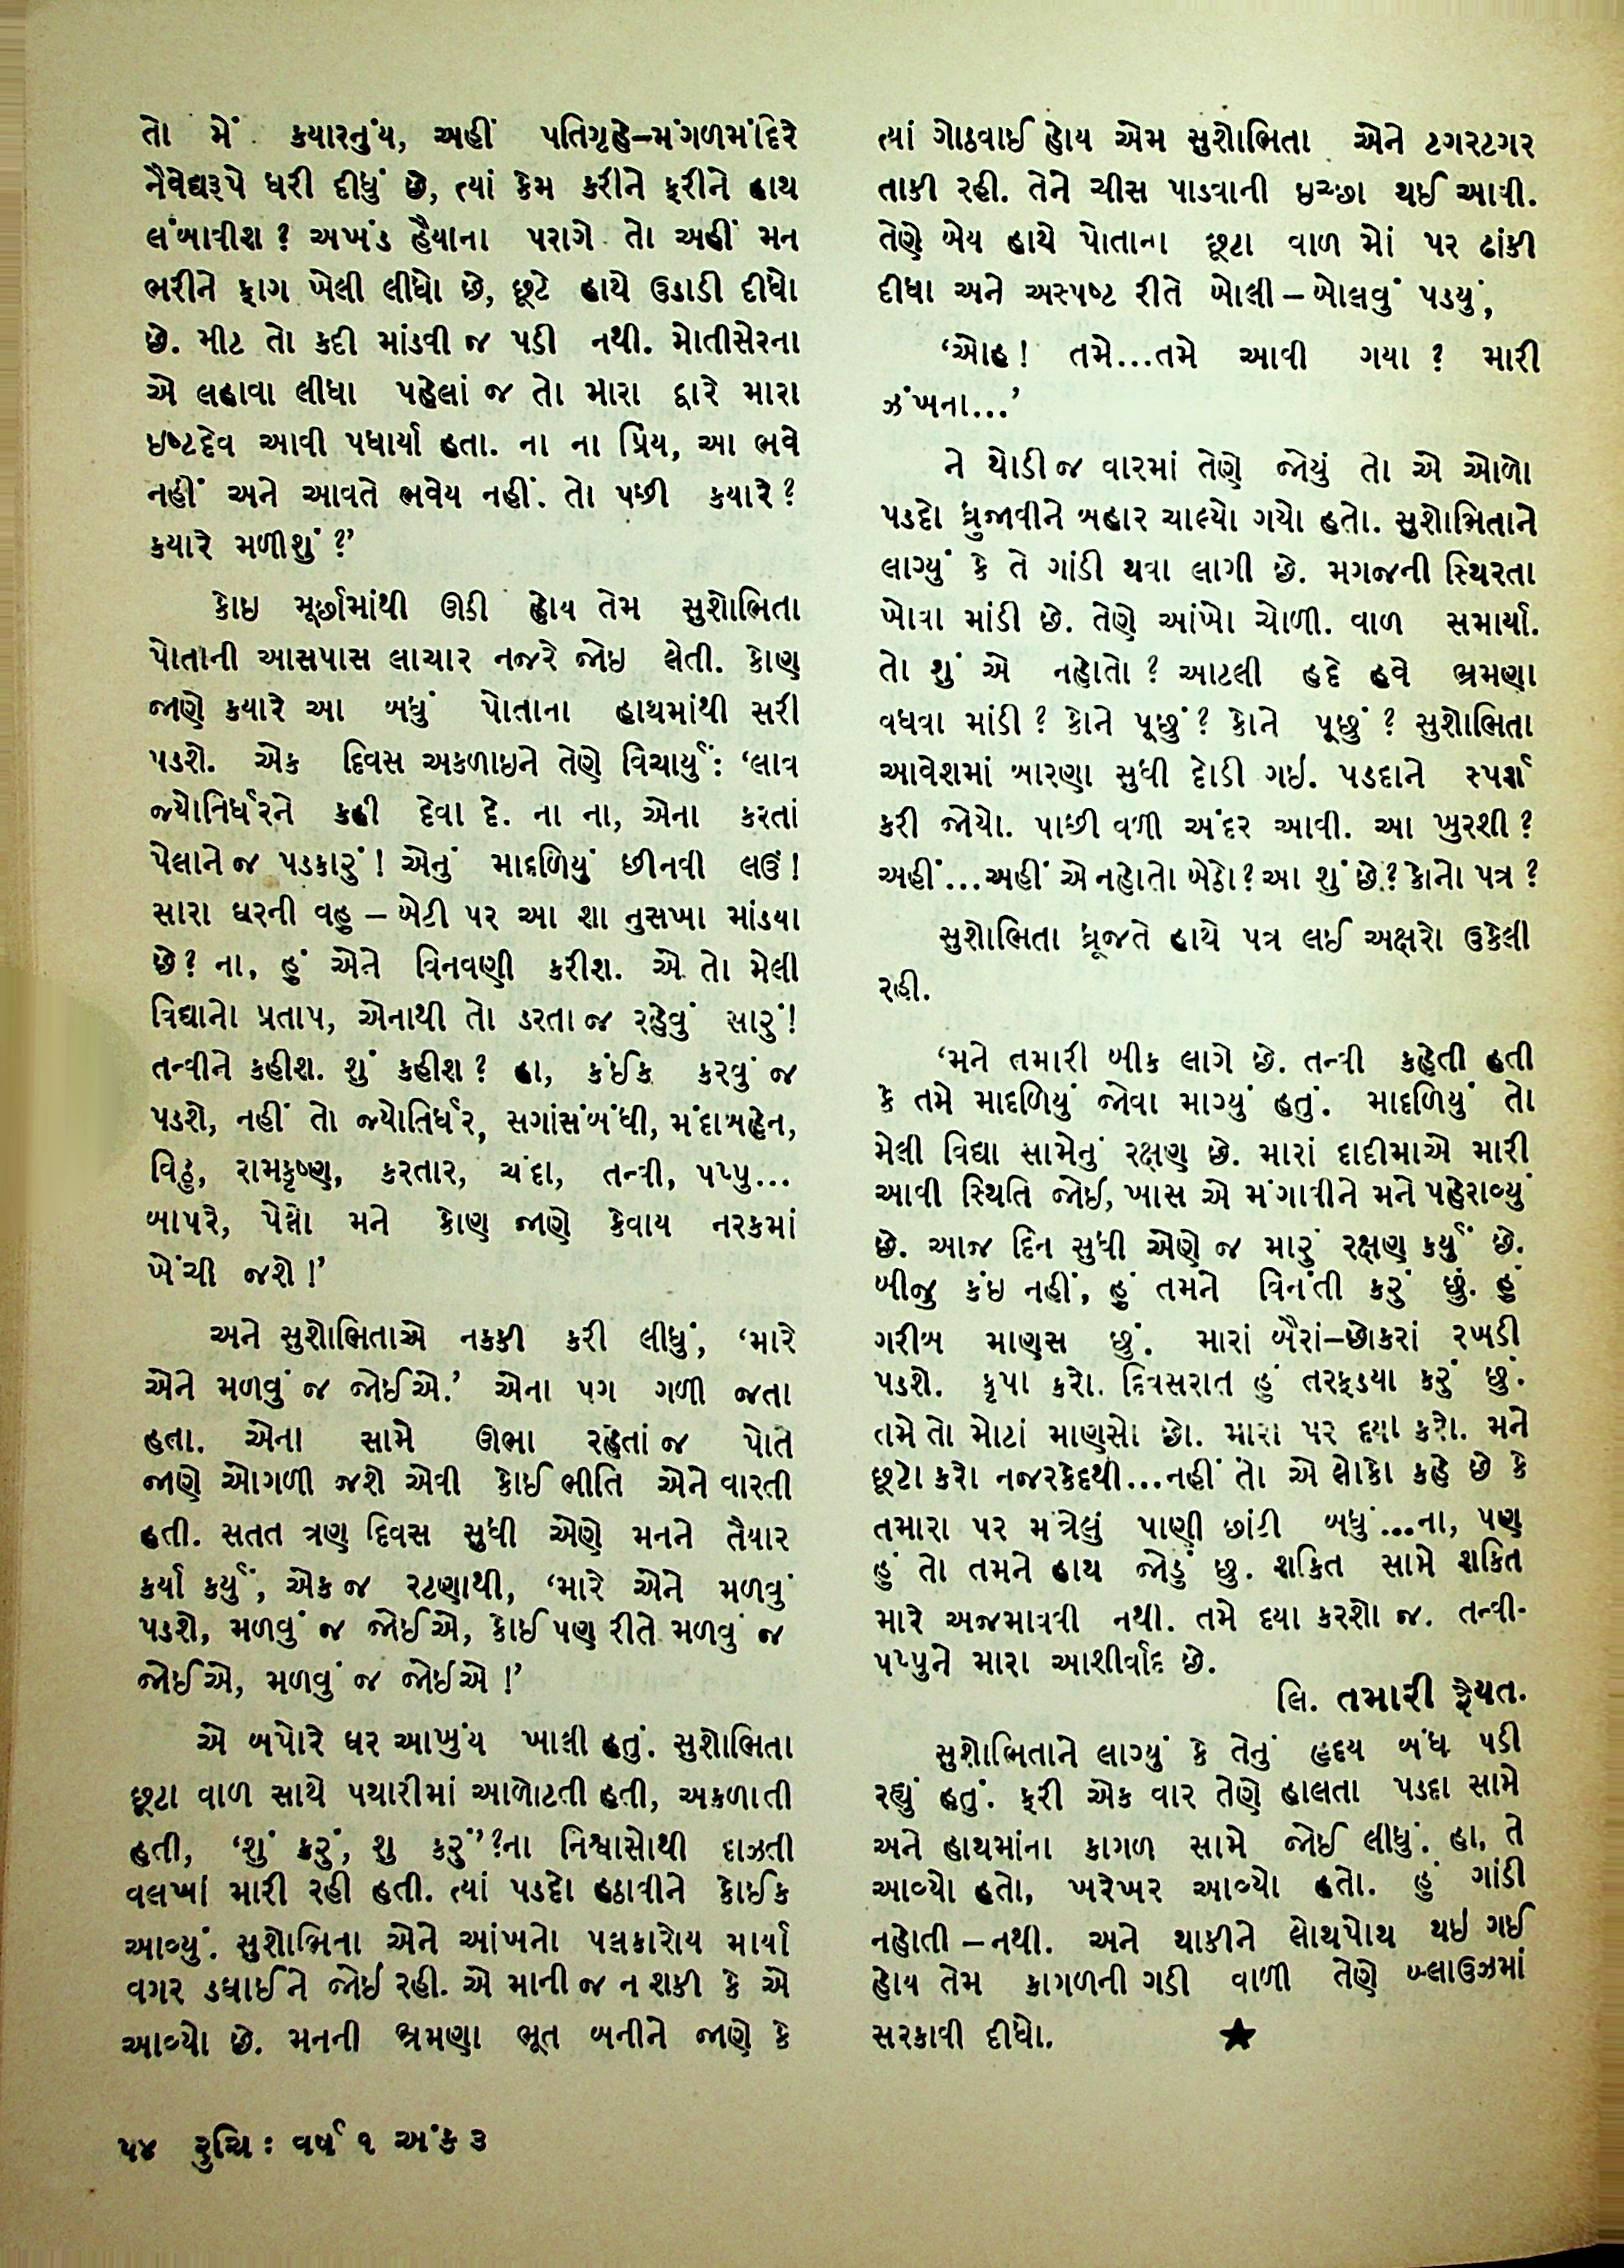 તો મેં કયારનુંય, અહીં પતિગૃહે–મંગળમંદિરે
નૈવેદ્યરૂપે ધરી દીધું છે, ત્યાં કેમ કરીને ફરીને હાથ
લંબાવીશ? અખંડ હૈયાના પરાગે તો અહીં મન
ભરીને ફાગ ખેલી લીધો છે, છૂટે હાથે ઉડાડી દીધો
છે. મીટ તો કદી માંડવી જ પડી નથી. મોતીસેરના
એ લહાવા લીધા પહેલાં જ તો મારા દ્વારે મારા
ઇષ્ટદેવ આવી પધાર્યા હતા. ના ના પ્રિય, આ ભવે
નહીં અને આવતે ભવેય નહીં. તો પછી કયારે?
કયારે મળીશું?’
કોઇ મૂર્છામાંથી ઊઠી હોય તેમ સુશોભિતા
પોતાની આસપાસ લાચાર નજરે જોઇ લેતી. કોણ
જાણે કયારે આ બધું પોતાના હાથમાંથી સરી
પડશે. એક દિવસ અકળાઇને તેણે વિચાર્યું: ‘લાવ
જ્યોતિર્ધરને કહી દેવા દે. ના ના, એના કરતાં
પેલાને જ પડકારું! એનું માદળિયું છીનવી લઉં!
સારા ઘરની વહુ – બેટી પર આ શા નુસખા માંડયા
છે? ના, હું એને વિનવણી કરીશ. એ તો મેલી
વિદ્યાનો પ્રતાપ, એનાથી તો ડરતા જ રહેવું સારું!
તન્વીને કહીશ. શું કહીશ? હા, કંઈક કરવું જ
પડશે, નહીં તો જ્યોતિર્ધર, સગાંસંબંધી, મંદાબહેન,
વિઠ્ઠુ, રામકૃષ્ણ, કરતાર, ચંદા, તન્વી, પપ્પુ...
બાપરે, પેલો મને કોણ જાણે કેવાય નરકમાં
ખેંચી જશે!’
અને સુશોભિતાએ નકકી કરી લીધું, ‘મારે
એને મળવું જ જોઈએ.’ એના પગ ગળી જતા
હતા. એના સામે ઊભા રહેતાં જ પોતે
જાણે ઓગળી જશે એવી કોઈ ભીતિ એને વારતી
હતી. સતત ત્રણ દિવસ સુધી એણે મનને તૈયાર
કર્યા કર્યું, એક જ રટણાથી, ‘મારે એને મળવું
પડશે, મળવું જ જોઈએ, કોઈ પણ રીતે મળવું જ
જોઈએ, મળવું જ જોઇએ!’
એ બપોરે ઘર આખુંય ખાલી હતું. સુશોભિતા
છૂટા વાળ સાથે પથારીમાં આળોટતી હતી, અકળાતી
હતી, ‘શું કરું, શુ કરું’?ના નિશ્વાસોથી દાઝતી
વલખાં મારી રહી હતી. ત્યાં પડદો હઠાવીને કોઈક
આવ્યું. સુશોભિતા એને આંખનો પલકારોય માર્યા
વગર ડઘાઈને જોઈ રહી. એ માની જ ન શકી કે એ
આવ્યો છે. મનની ભ્રમણા ભૂત બનીને જાણે કે
ત્યાં ગોઠવાઈ હોય એમ સુશોભિતા એને ટગરટગર
તાકી રહી. તેને ચીસ પાડવાની ઇચ્છા થઈ આવી.
તેણે બેય હાથે પોતાના છૂટા વાળ મોં પર ઢાંકી
દીધા અને અસ્પષ્ટ રીતે બોલી – બોલવું પડયું,
‘ઓહ! તમે...તમે આવી ગયા? મારી
ઝંખના...’
ને થોડી જ વારમાં તેણે જોયું તો એ ઓળો
પડદો ધ્રુજાવીને બહાર ચાલ્યો ગયો હતો. સુશોભિતાને
લાગ્યું કે તે ગાંડી થવા લાગી છે. મગજની સ્થિરતા
ખોવા માંડી છે. તેણે આંખો ચોળી. વાળ સમાર્યા.
તો શું એ નહોતો? આટલી હદે હવે ભ્રમણા
વધવા માંડી? કોને પૂછું? કોને પૂછું? સુશોભિતા
આવેશમાં બારણા સુધી દોડી ગઇ. પડદાને સ્પર્શ
કરી જોયો. પાછી વળી અંદર આવી. આ ખુરશી?
અહીં...અહીં એ નહોતો બેઠો? આ શું છે? કોનો પત્ર?
સુશોભિતા ધ્રૂજતે હાથે પત્ર લઈ અક્ષરો ઉકેલી
રહી.
‘મને તમારી બીક લાગે છે. તન્વી કહેતી હતી
કે તમે માદળિયું જોવા માગ્યું હતું. માદળિયું તો
મેલી વિદ્યા સામેનું રક્ષણ છે. મારાં દાદીમાએ મારી
આવી સ્થિતિ જોઈ, ખાસ એ મંગાવીને મને પહેરાવ્યું
છે. આજ દિન સુધી એણે જ મારું રક્ષણ કર્યું છે.
બીજુ કંઇ નહીં, હું તમને વિનંતી કરું છું. હું
ગરીબ માણસ છું. મારાં બૈરાં–છોકરાં રખડી
પડશે. કૃપા કરો. દિવસરાત હું તરફડયા કરું છું.
તમે તો મોટાં માણસો છો. મારા પર દયા કરો. મને
છૂટો કરો નજરકેદથી...નહીં તો એ લોકો કહે છે કે
તમારા પર મંત્રેલું પાણી છાંટી બધું...ના, પણ
હું તો તમને હાથ જોડું છુ. શકિત સામે શકિત
મારે અજમાવવી નથી. તમે દયા કરશો જ. તન્વી-
પપ્પુને મારા આશીર્વાદ છે.
લિ. તમારી રૈયત.
સુશોભિતાને લાગ્યું કે તેનું હૃદય બંધ પડી
રહ્યું હતું. ફરી એક વાર તેણે હાલતા પડદા સામે
અને હાથમાંના કાગળ સામે જોઈ લીધું. હા, તે
આવ્યો હતો, ખરેખર આવ્યો હતો. હું ગાંડી
નહોતી – નથી. અને થાકીને લોથપોથ થઇ ગઈ
હોય તેમ કાગળની ગડી વાળી તેણે બ્લાઉઝમાં
સરકાવી દીધો. ★
૫૪ રુચિ : વર્ષ ૧ અંક ૩